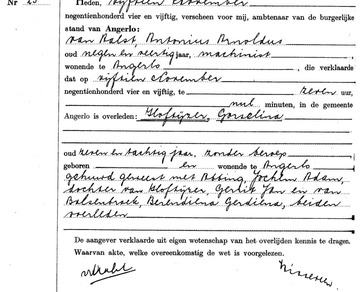 Nr 25 Heden, vijftien November
negentienhonderd vier en vijftig, verscheen voor mij, ambtenaar van de burgerlijke
stand van Angerlo:
van Aalst, Antonius Arnoldus
oud negen en veertig jaar, machinist
wonende te Angerlo, die verklaarde
dat op vijftien November
negentienhonderd vier en vijftig, te zeven uur,
nul minuten, in de gemeente
Angerlo is overleden: Kloftijzer, Gosselina
oud zeven en tachtig jaar, zonder beroep
geboren en wonende te Angerlo
gehuwd geweest met Abbing, Jochem Adam,
dochter van Kloftijzer, Gerrit Jan en van
Berendiena Gerdiena, beiden
overleden
De aangever verklaarde uit eigen wetenschap van het overlijden kennis te dragen.
Waarvan akte, welke overeenkomstig de wet is voorgelezen.